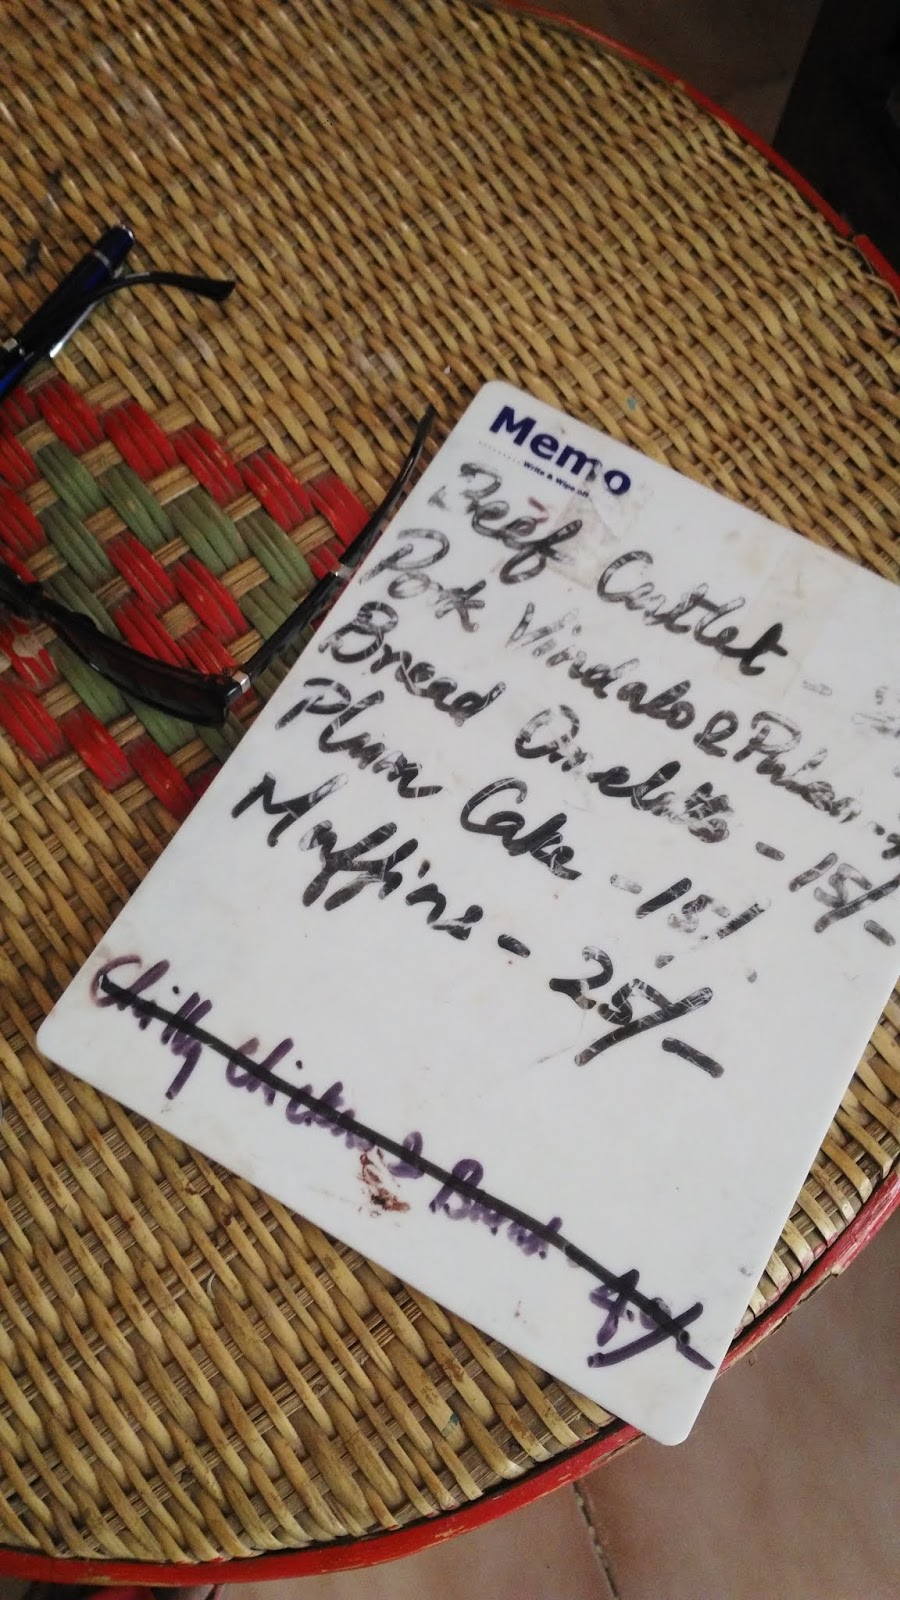 Memo
Write & Wipe off
Beef Cutlet -
Pork Vindaloo & Pulao -
Bread Omelette - 15/-
Plum Cake - 15/.
Muffins - 25/-
Chilly Chicken & Bread - 40/-